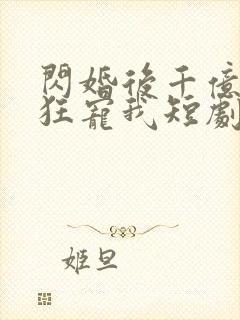 閃婚後千億
狂寵我短劇
姬旦